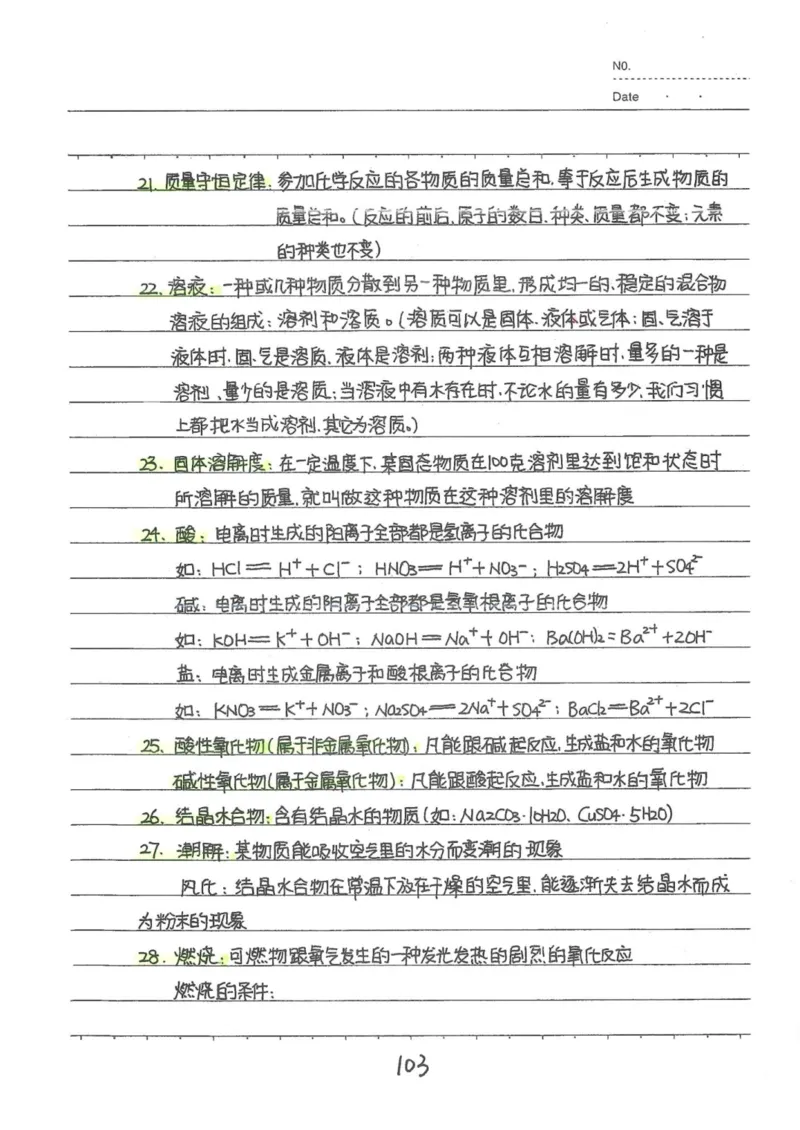 NO.
Date · ·
21. 质量守恒定律:参加化学反应的各物质的质量总和,等于反应后生成物质的
质量总和。(反应的前后,原子的数目、种类、质量都不变;元素
的种类也不变)
22. 溶液:一种或几种物质分散到另一种物质里,形成均一的、稳定的混合物
溶液的组成:溶剂和溶质。(溶质可以是固体、液体或气体;固、气溶于
液体时,固、气是溶质、液体是溶剂;两种液体互相溶解时,量多的一种是
溶剂、量少的是溶质;当溶液中有水存在时,不论水的量有多少,我们习惯
上都把水当成溶剂,其它为溶质。)
23. 固体溶解度:在一定温度下,某固态物质在100克溶剂里达到饱和状态时
所溶解的质量,就叫做这种物质在这种溶剂里的溶解度
24. 酸:电离时生成的阳离子全部都是氢离子的化合物
如:HCl══H⁺+Cl⁻;HNO₃══H⁺+NO₃⁻;H₂SO₄══2H⁺+SO₄²⁻
碱:电离时生成的阴离子全部都是氢氧根离子的化合物
如:KOH══K⁺+OH⁻;NaOH══Na⁺+OH⁻;Ba(OH)₂=Ba²⁺+2OH⁻
盐:电离时生成金属离子和酸根离子的化合物
如:KNO₃══K⁺+NO₃⁻;Na₂SO₄══2Na⁺+SO₄²⁻;BaCl₂══Ba²⁺+2Cl⁻
25. 酸性氧化物(属于非金属氧化物):凡能跟碱起反应,生成盐和水的氧化物
碱性氧化物(属于金属氧化物):凡能跟酸起反应,生成盐和水的氧化物
26. 结晶水合物:含有结晶水的物质(如:Na₂CO₃·10H₂O、CuSO₄·5H₂O)
27. 潮解:某物质能吸收空气里的水分而变潮的现象
风化:结晶水合物在常温下放在干燥的空气里,能逐渐失去结晶水而成
为粉末的现象
28. 燃烧:可燃物跟氧气发生的一种发光发热的剧烈的氧化反应
燃烧的条件:
103